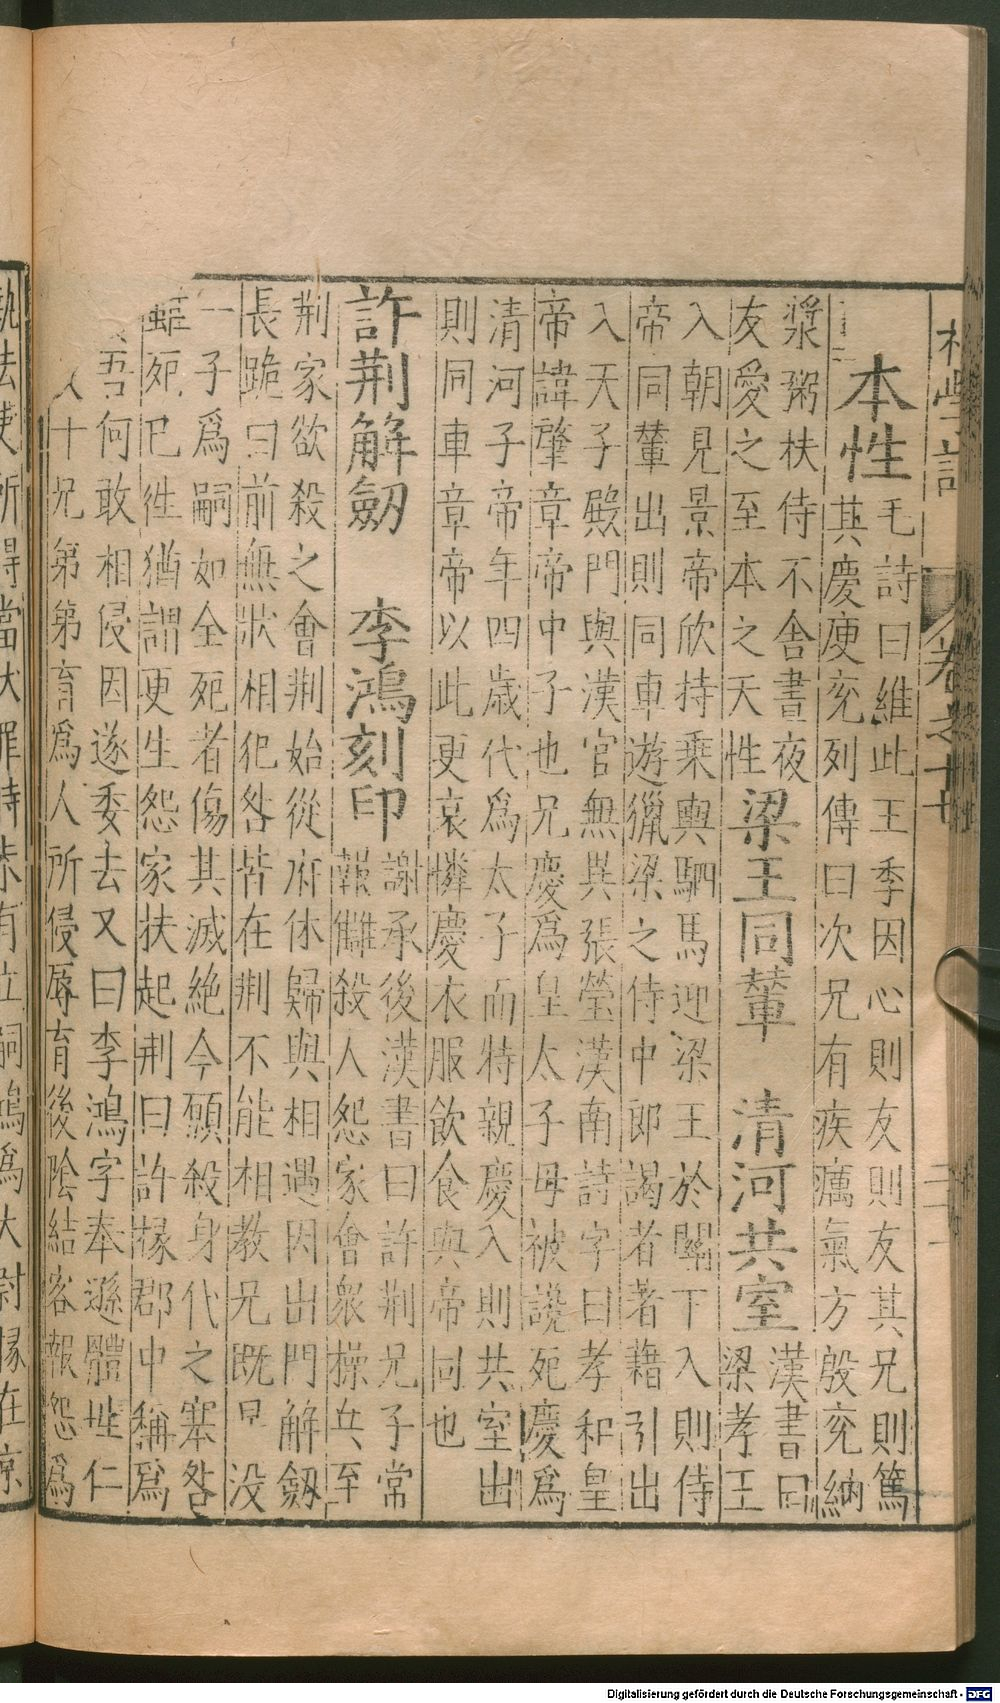 本性
毛詩曰維此王季因心則友則友其兄則篤
其慶庾兖列傳曰次兄有疾癘氣方殷兖納
漿粥扶侍不舍書夜
友愛之至本之天性
梁王同輦　清河共室
漢書曰
梁孝王
入朝見景帝欣持乘輿駟馬迎梁王於關下入則侍
帝同輦出則同車遊獵梁之侍中郎謁者著籍引出
入天子殿門與漢官無異張瑩漢南詩字曰孝和皇
帝諱肇章帝中子也兄慶爲皇太子母被讒死慶爲
清河子帝年四歲代爲太子而特親慶入則共室出
則同車章帝以此更哀憐慶衣服飲食與帝同也
許荆解劒　李鴻刻印
謝承後漢書曰許荆兄子常
報讎殺人怨家會衆操兵至
荆家欲殺之會荆始從府休歸與相遇因出門解劒
長跪曰前無狀相犯咎皆在荆不能相教兄既早没
一子爲嗣如全死者傷其滅絶今願殺身代之塞咎
雖死已徃猶謂更生怨家扶起荆曰許掾郡中稱爲
吾何敢相侵因遂委去又曰李鴻字奉遜體性仁
十兄第第育爲人所侵辱育後陰結客報怨爲
執法吏所得當大罪時未有立嗣鴻爲大尉掾在京
卷之廿
Digitalisierung gefördert durch die Deutsche Forschungsgemeinschaft - DFG